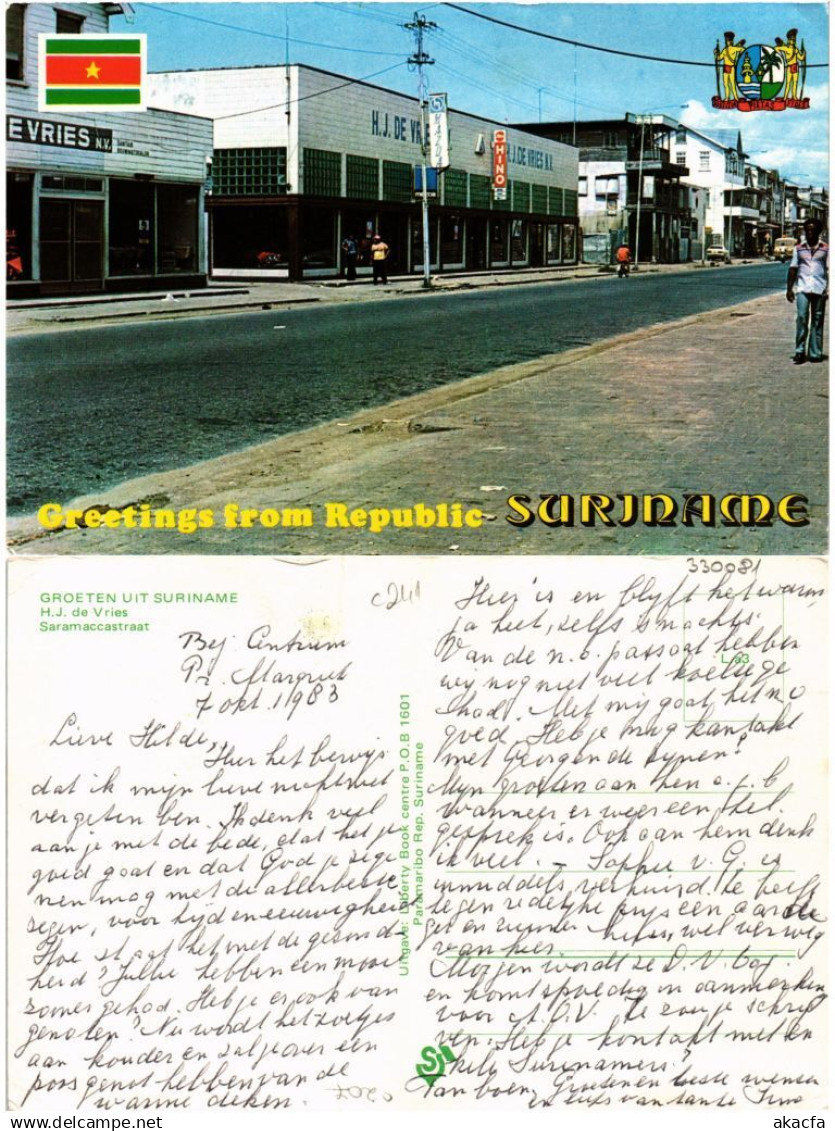 DE VRIES N.V.
H.J. DE VRIES
MAZDA
HINO
H.J. DE VRIES N.V.
Greetings from Republic SURINAME
GROETEN UIT SURINAME
H.J. de Vries
Saramaccastraat
c241
330081
L 63
Bej. Centrum
Pr. Margriet
7 okt. 1983
Lieve Hilde,
Hier het bewijs
dat ik mijn lieve nicht niet
vergeten ben. Ik denk veel
aan je met de bede, dat het je
goed gaat en dat God je zege
nen mog met de allerbeste
zegen, voor tijd en eeuwigheid
Hoe staat het met de gezond
heid? Jullie hebben een mooi
zomer gehad. Heb je er ook van
genoten? Nu wordt het zoetjes
aan kouder en zal je over een
poos genot hebben van de
warme deken.
Uitgave: Laberty Book centre P.O.B 1601
Paramaribo Rep. Suriname
Hier is en blijft het warm,
ja heet, zelfs 's nachts.
Van de n.o. passaat hebben
wij nog niet veel koelte ge
had. Met mij gaat het n.o
goed. Heb je nog kontakt
met Georg en de zijnen?
Mijn groeten aan hen a.j.b
wanneer er weer een tel.
gesprek is. Ook aan hem denk
ik veel. – Sophie v. G. is
inmiddels verhuisd. Ze heeft
tegen redelijke prijs een aardig
en ruimer huis, wel ver weg
van hier.
Morgen wordt ze D.V. 60j
en komt spoedig in aanmerking
voor A.O.V. Ze zou je schrij
ven. Heb je kontakt met en
kele Surinamers?
Groeten en beste wensen
van tante
0207
Sn